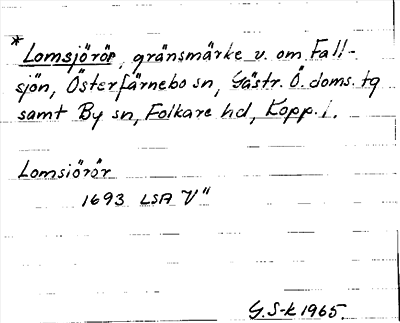 *Lomsjörör, gränsmärke v. om Fall-
sjön, Österfärnebo sn, Gästr. Ö. doms. tg
samt By sn, Folkare hd, Kopp. l.
Lomsiörör
1693 LSA V"
G.S-k 1965.